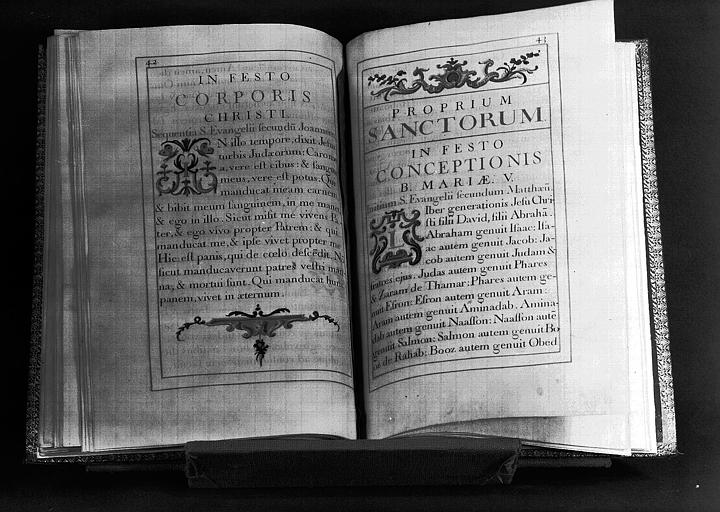 42
IN FESTO
CORPORIS
CHRISTI.
Sequentia S. Evangelii secundũ Joannem
IN illo tempore, dixit Jesus
turbis Judæorum: Caro
a, vere est cibus: & sanguis
meus, vere est potus. Qui
manducat meam carnem
& bibit meum sanguinem, in me manet
& ego in illo. Sicut misit me vivens Pa-
ter, & ego vivo propter Patrem: & qui
manducat me, & ipse vivet propter me
Hic est panis, qui de cœlo descẽdit. Nõ
sicut manducaverunt patres vestri man-
na, & mortui sunt. Qui manducat hunc
panem, vivet in æternum.
43
PROPRIUM
SANCTORUM
IN FESTO
CONCEPTIONIS
B. MARIÆ. V.
Initium S. Evangelii secundum Matthæũ.
Liber generationis Jesu Chri-
sti filii David, filii Abrahã.
Abraham genuit Isaac: Isa-
ac autem genuit Jacob: Ja-
cob autem genuit Judam &
fratres ejus. Judas autem genuit Phares
& Zaram de Thamar: Phares autem ge-
nuit Esron: Esron autem genuit Aram:
Aram autem genuit Aminadab. Amina-
dab autem genuit Naasson: Naasson autẽ
genuit Salmon: Salmon autem genuit Bo
oz de Rahab: Booz autem genuit Obed